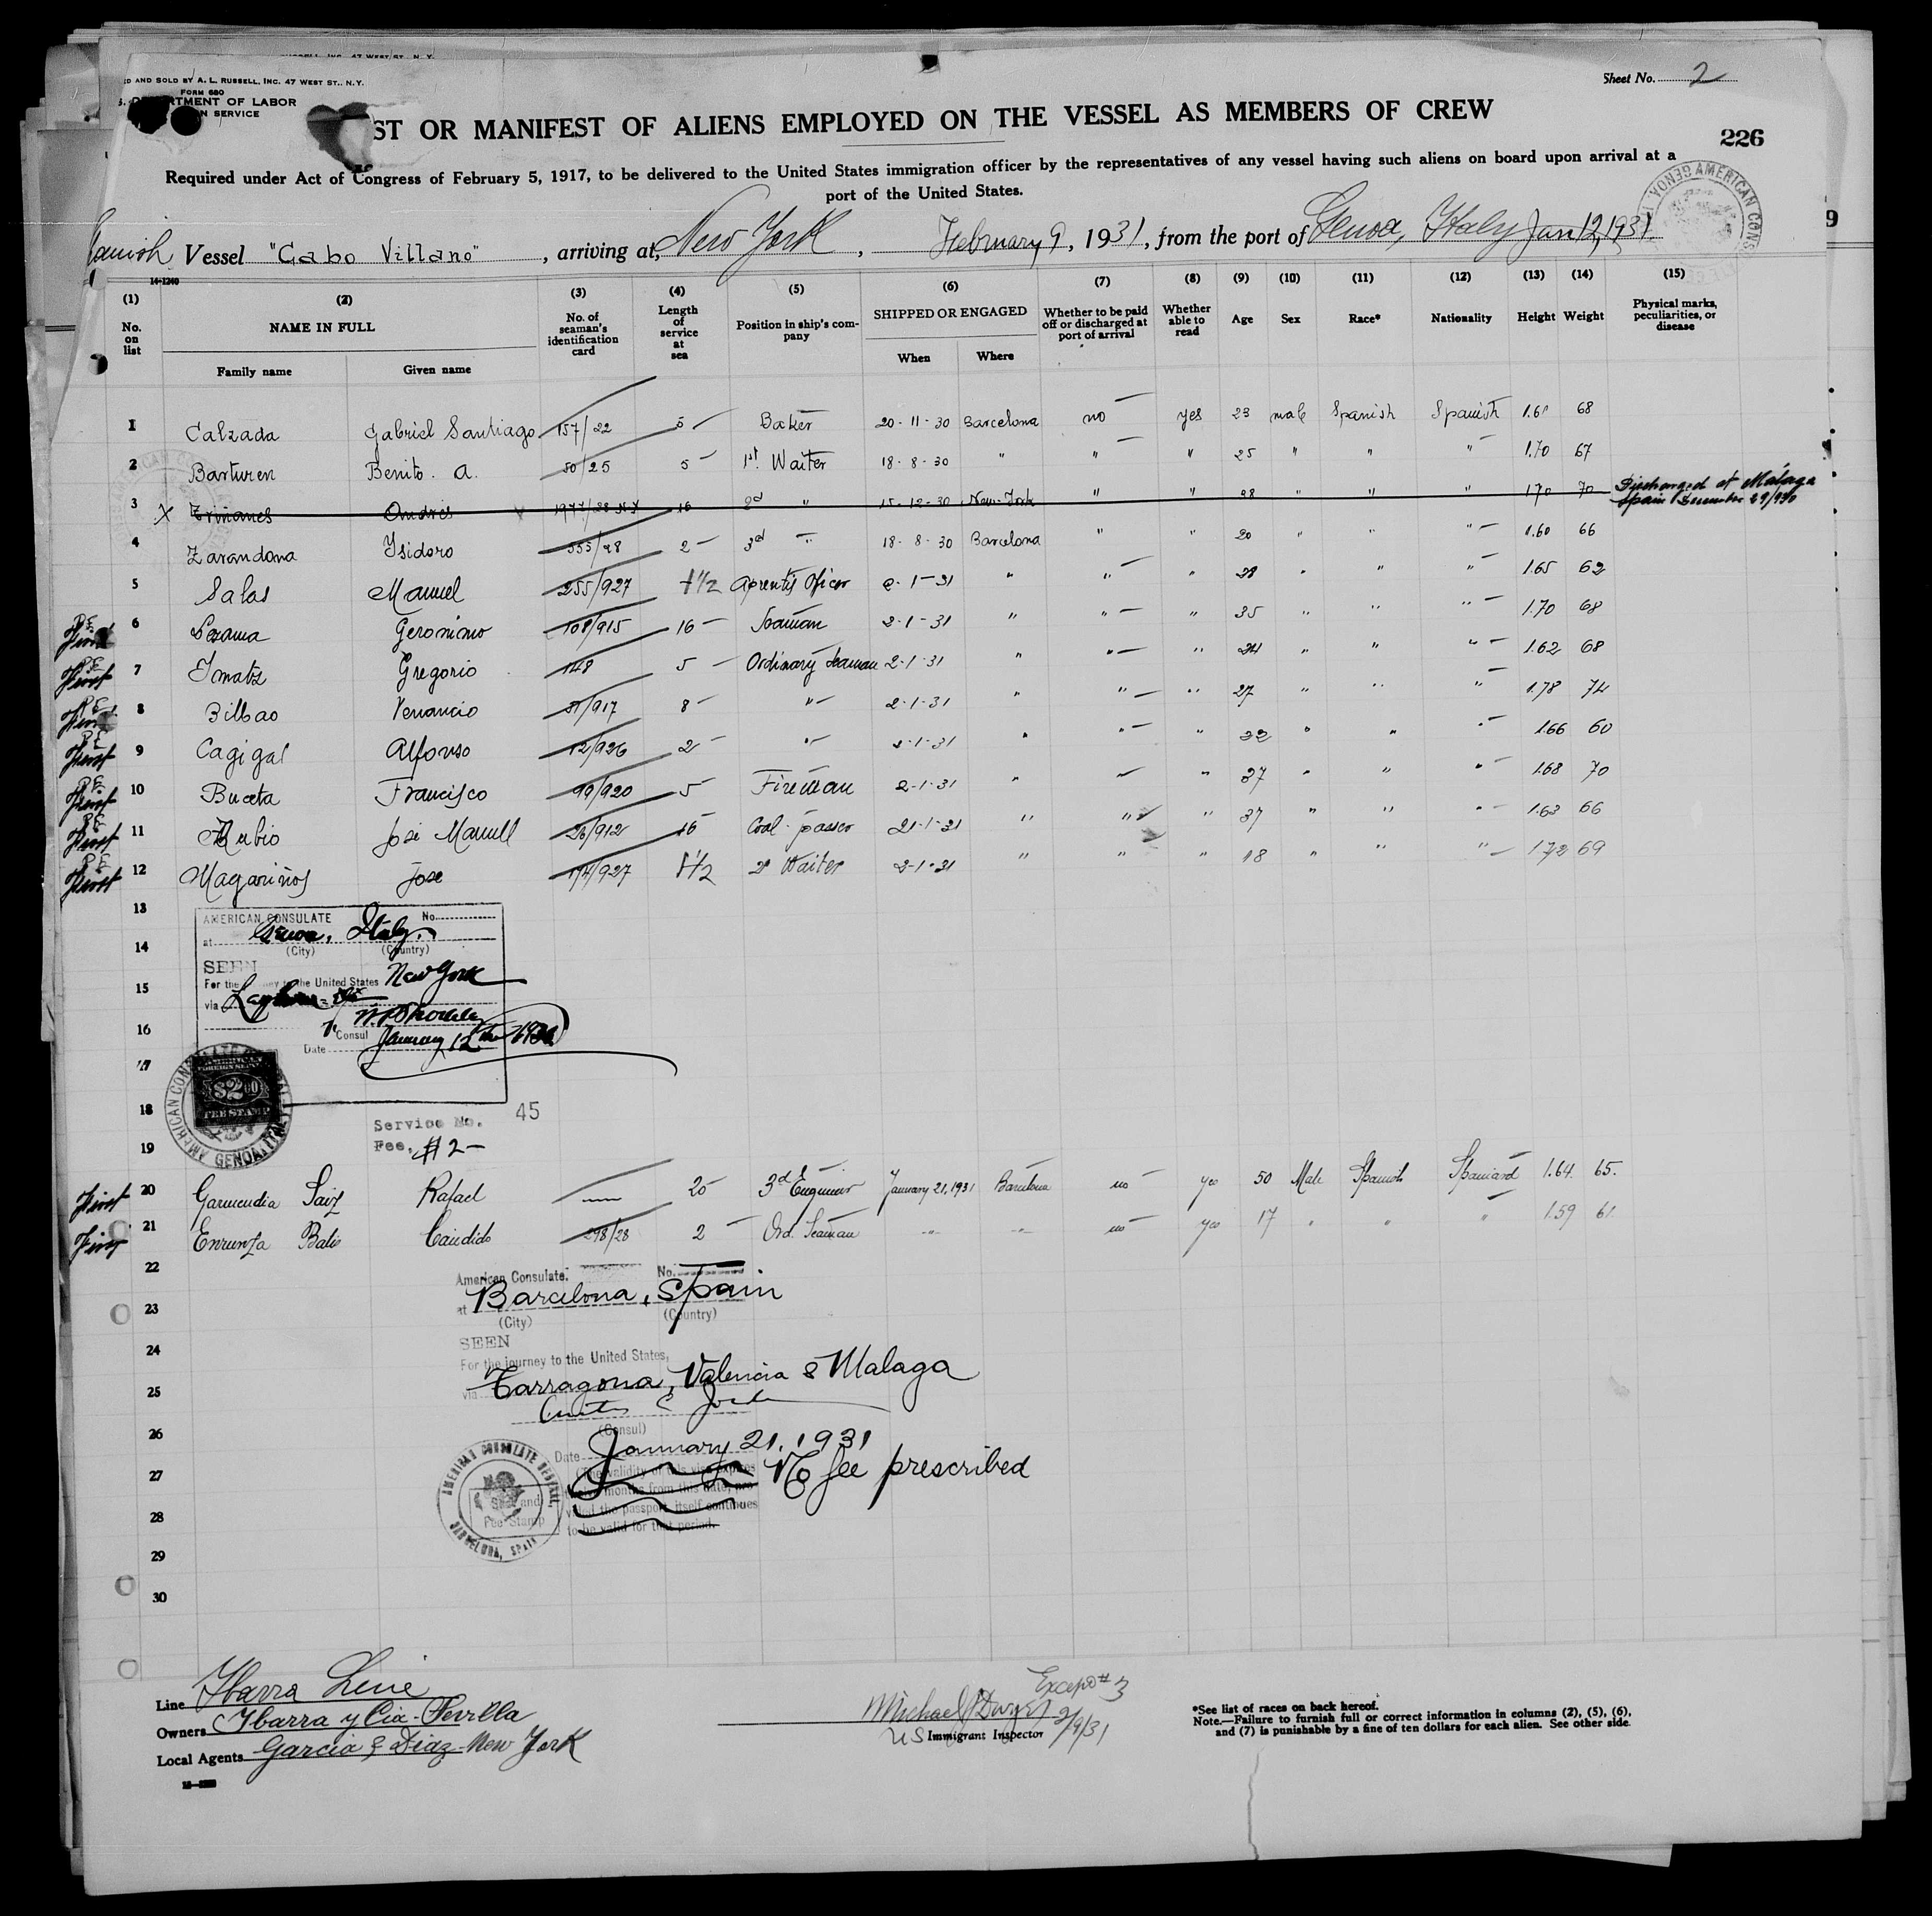 RUSSELL, INC. 47 WEST ST., N.Y.
ED AND SOLD BY A. L. RUSSELL, INC. 47 WEST ST., N.Y.
FORM 680
DEPARTMENT OF LABOR
SERVICE
Sheet No. 2
ST OR MANIFEST OF ALIENS EMPLOYED ON THE VESSEL AS MEMBERS OF CREW
226
Required under Act of Congress of February 5, 1917, to be delivered to the United States immigration officer by the representatives of any vessel having such aliens on board upon arrival at a
port of the United States.
anish Vessel "Cabo Villano", arriving at New York, February 9, 1931, from the port of Genoa, Italy Jan 12, 1931
9
14-1240
(1) No. on list
(2) NAME IN FULL
Family name Given name
(3) No. of seaman's identification card
(4) Length of service at sea
(5) Position in ship's company
(6) SHIPPED OR ENGAGED
When Where
(7) Whether to be paid off or discharged at port of arrival
(8) Whether able to read
(9) Age
(10) Sex
(11) Race*
(12) Nationality
(13) Height
(14) Weight
(15) Physical marks, peculiarities, or disease
1 Calzada Gabriel Santiago 157/22 5 Baker 20-11-30 Barcelona no yes 23 male Spanish Spanish 1.61 68
2 Barturen Benito. A. 50/25 5 1st. Waiter 18-8-30 " " " 25 " " " 1.70 67
3 X Triñanes Andrés 1977/28 NY 16 2d " 15-12-30 New-York " " 28 " " " 1.70 70 Discharged at Málaga
Spain December 29/930
4 Zarandona Ysidoro 555/28 2 3d " 18-8-30 Barcelona " " 20 " " " 1.60 66
5 Salas Manuel 255/927 1½ Aprentis Oficer 2-1-31 " " " 28 " " " 1.65 62
PE First 6 Lezama Geronimo 108/915 16 Seaman 2-1-31 " " " 35 " " " 1.70 68
PE First 7 Ymatz Gregorio 148 5 Ordinary Seaman 2-1-31 " " " 24 " " " 1.62 68
PE First 8 Bilbao Venancio 51/917 8 " 2-1-31 " " " 27 " " " 1.78 74
PE First 9 Cagigal Alfonso 12/926 2 " 2-1-31 " " " 22 " " " 1.66 60
PE First 10 Buceta Francisco 99/920 5 Fireman 2-1-31 " " " 37 " " " 1.68 70
PE First 11 Rubio José Manuel 26/912 15 Coal-passer 21-1-31 " " " 37 " " " 1.63 66
PE First 12 Magariños Jose 174/927 1½ 2d Waiter 2-1-31 " " " 18 " " " 1.72 69
13
14
15
16
17
18
19
AMERICAN CONSULATE No.
at Genoa, Italy.
(City) (Country)
SEEN
For the journey to the United States New York
via
Consul
Date January 12th 1931
AMERICAN FOREIGN SERVICE
$2.00
FEE STAMP
AMERICAN CONSULATE GENERAL GENOA, ITALY
Service No. 45
Fee, $2-
First 20 Garmendia Saiz Rafael — 20 3d Engineer January 21, 1931 Barcelona no yes 50 Male Spanish Spaniard 1.64. 65.
First 21 Candido 298/28 2 Ord. Seaman " " no yes 17 " " " 1.59 61.
22
23
24
25
26
27
28
29
30
American Consulate. No.
at Barcelona, Spain
(City) (Country)
SEEN
For the journey to the United States,
via Tarragona, Valencia & Malaga
(Consul)
Date January 21, 1931
No fee prescribed
(The validity of this visa expires
twelve months from this date, pro-
vided the passport itself continues
to be valid for that period.
Seal and
Fee Stamp
AMERICAN CONSULATE GENERAL
BARCELONA, SPAIN
Line Ybarra Line
Owners Ybarra y Cia - Sevilla
Local Agents Garcia & Diaz - New York
Except #3
Michael J Dwyer 2/9/31
US Immigrant Inspector
*See list of races on back hereof.
Note.—Failure to furnish full or correct information in columns (2), (5), (6),
and (7) is punishable by a fine of ten dollars for each alien. See other side.